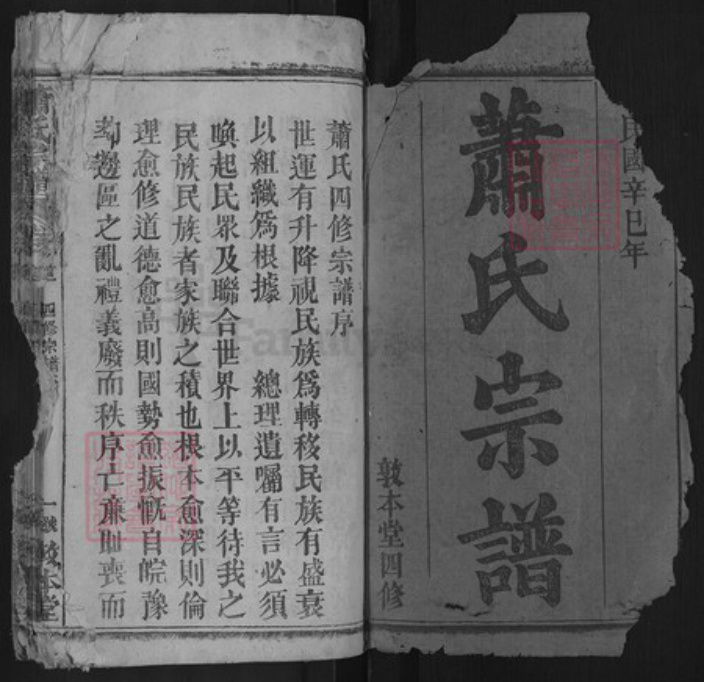 民國辛巳年
蕭氏宗譜
敦本堂四修
蕭氏四修宗譜序
世運有升降視民族爲轉移民族有盛衰
以組織爲根據 總理遺囑有言必須
喚起民眾及聯合世界上以平等待我之
民族民族者家族之積也根本愈深則倫
理愈修道德愈高則國勢愈振慨自皖豫
邊區之亂禮義廢而秩序亡廉恥喪而
四修宗譜
敦本堂